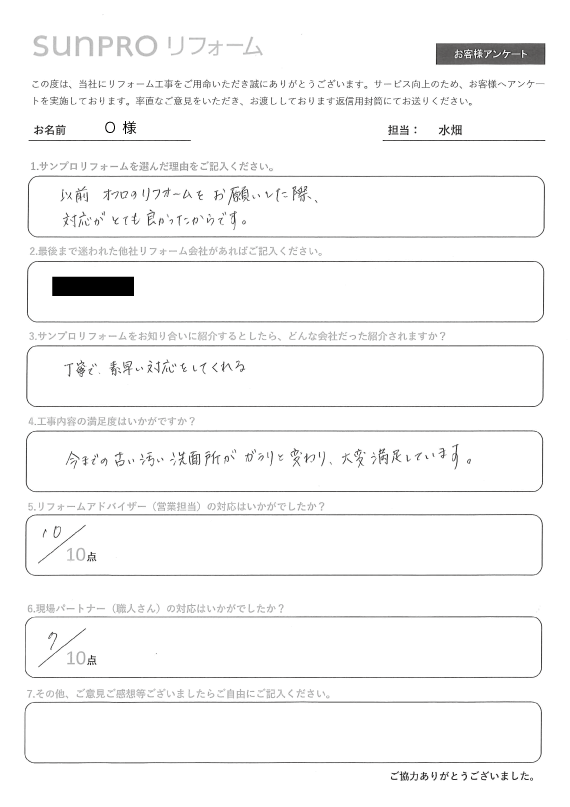 SUNPRO リフォーム
お客様アンケート
この度は、当社にリフォーム工事をご用命いただき誠にありがとうございます。サービス向上のため、お客様へアンケー
トを実施しております。率直なご意見をいただき、お渡ししております返信用封筒にてお送りください。
お名前 O 様 担当： 水畑
1.サンプロリフォームを選んだ理由をご記入ください。
以前 オフロのリフォームを お願いした際、
対応が とても 良かったからです。
2.最後まで迷われた他社リフォーム会社があればご記入ください。
3.サンプロリフォームをお知り合いに紹介するとしたら、どんな会社だった紹介されますか？
丁寧で、素早い対応をしてくれる
4.工事内容の満足度はいかがですか？
今までの古い汚い 洗面所が ガラリと 変わり、大変 満足しています。
5.リフォームアドバイザー（営業担当）の対応はいかがでしたか？
10/10点
6.現場パートナー（職人さん）の対応はいかがでしたか？
7/10点
7.その他、ご意見ご感想等ございましたらご自由にご記入ください。
ご協力ありがとうございました。